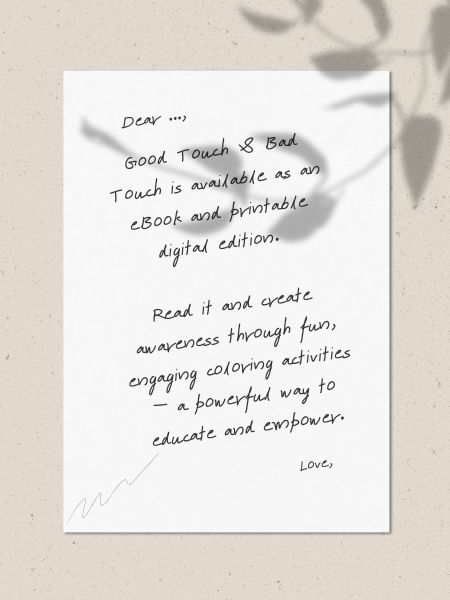 Dear ...,
Good Touch & Bad
Touch is available as an
eBook and printable
digital edition.
Read it and create
awareness through fun,
engaging coloring activities
— a powerful way to
educate and empower.
Love,